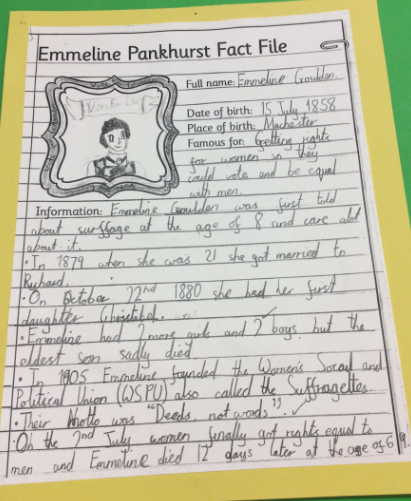 Emmeline Pankhurst Fact File
Full name: Emmeline Goulden.
Date of birth: 15 July 1858
Place of birth: Machester
Famous for: Getting rights
for women so they
could vote and be equal
with men.
Information: Emmeline Goulden was first told
about surffage at the age of 8 and care alot
about it.
• In 1879 when she was 21 she got married to
Richard.
• On October 22nd 1880 she had her first
daughter Christabel.
• Emmeline had 2 more girls and 2 boys but the
oldest son sadly died.
• In 1905 Emmeline founded the Women's Social and
Political Union (WSPU) also called the Suffragettes.
• Their Motto was "Deeds, not words"
• On the 2nd July women finally got rights equal to
men and Emmeline died 12 days later at the age of 69!